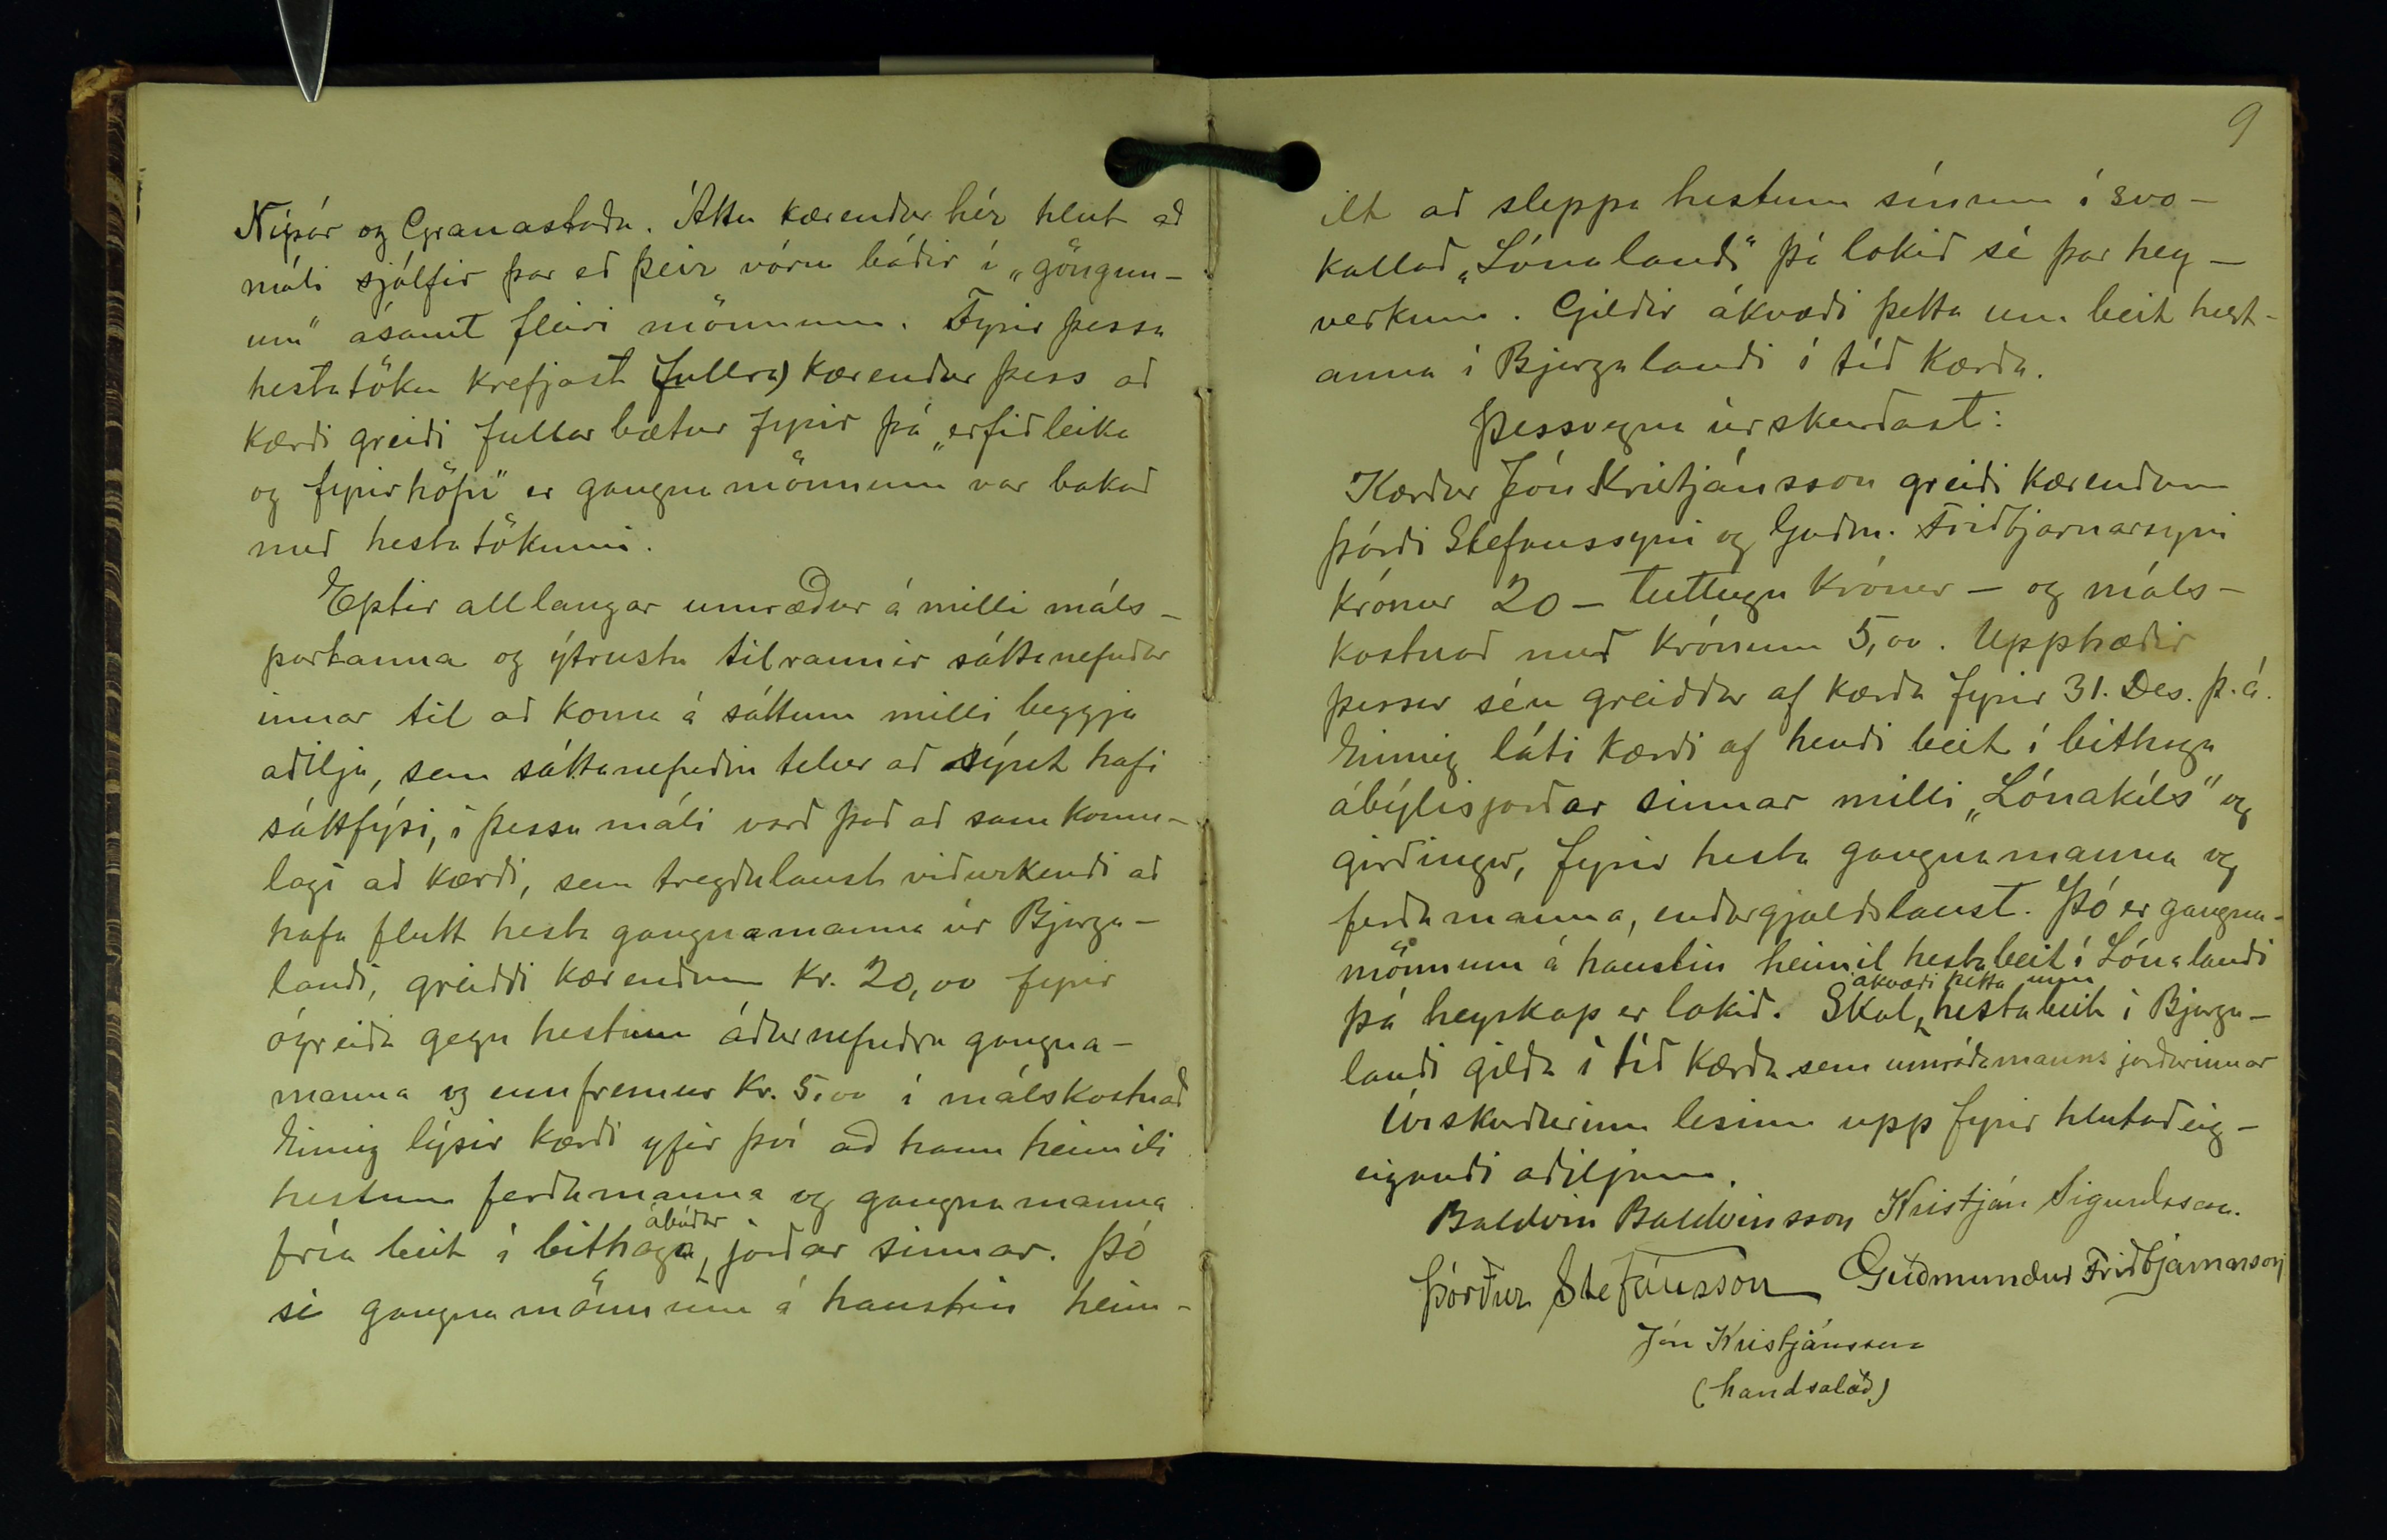 Nípár og Granastaða. Áttu kærendur hér hlut að
máli sjálfir þar eð þeir vóru báðir í „göngun-
um" ásamt fleiri mönnum. Fyrir þessa
hestatöku krefjast (fullra) kærendur þess að
kærði greiði fullar bætur fyrir þá „erfiðleika
og fyrirhöfn" er gangnamönnum var bakað
með hestatökunni.
Eptir alllangar umræður á milli máls-
partanna og ýtrustu tilraunir sáttanefndar
innar til að koma á sáttum milli beggja
aðilja, sem sáttanefndin telur að sýnt hafi
sáttfýsi, í þessu máli varð það að samkomu-
lagi að kærði, sem tregðulaust viðurkendi að
hafa flutt hesta gangnamanna úr Bjarga-
landi, greiddi kærendum Kr. 20,00 fyrir
ógreiða gegn hestum áðurnefndra gangna-
manna og ennfremur Kr. 5.00 í málskostnað
Einnig lýsir kærði yfir því að hann heimili
hestum ferðamanna og gangnamanna
fría beit í bithaga ábúðar jarðar sinnar. Þó
sé gangnamönnum á haustin heim-
9
ilt að sleppa hestum sínum í svo-
kallað „Lónaland" þá lokið sé þar hey-
verkum. Gildir ákvæði þetta um beit hest-
anna í Bjargalandi í tíð kærða.
Þessvegna úrskurðast:
Kærður Jón Kristjánsson greiði kærendum
Þórði Stefánssyni og Guðm. Friðbjarnarsyni
krónur 20 - tuttugu krónur - og máls-
kostnað með krónum 5,00. Upphæðir
þessar séu greiddar af kærða fyrir 31. Des. þ.á.
Einnig láti kærði af hendi beit í bithaga
ábýlisjarðar sinnar milli „Lónakíls" og
girðingar, fyrir hesta gangnamanna og
ferðamanna, endurgjaldslaust. Þó er gangna-
mönnum á haustin heimil hestabeit í Lónalandi
þá heyskap er lokið. Skal ákvæði þetta um hestabeit í Bjarga-
landi gilda í tíð kærða sem umráðamanns jarðarinnar
Úrskurðurinn lesinn upp fyrir hlutaðeig-
eigandi aðiljum.
Baldvin Baldvinsson Kristján Sigurðsson.
Þórður Stefánsson Guðmundur Friðbjarnarson
Jón Kristjánsson
(handsalað)